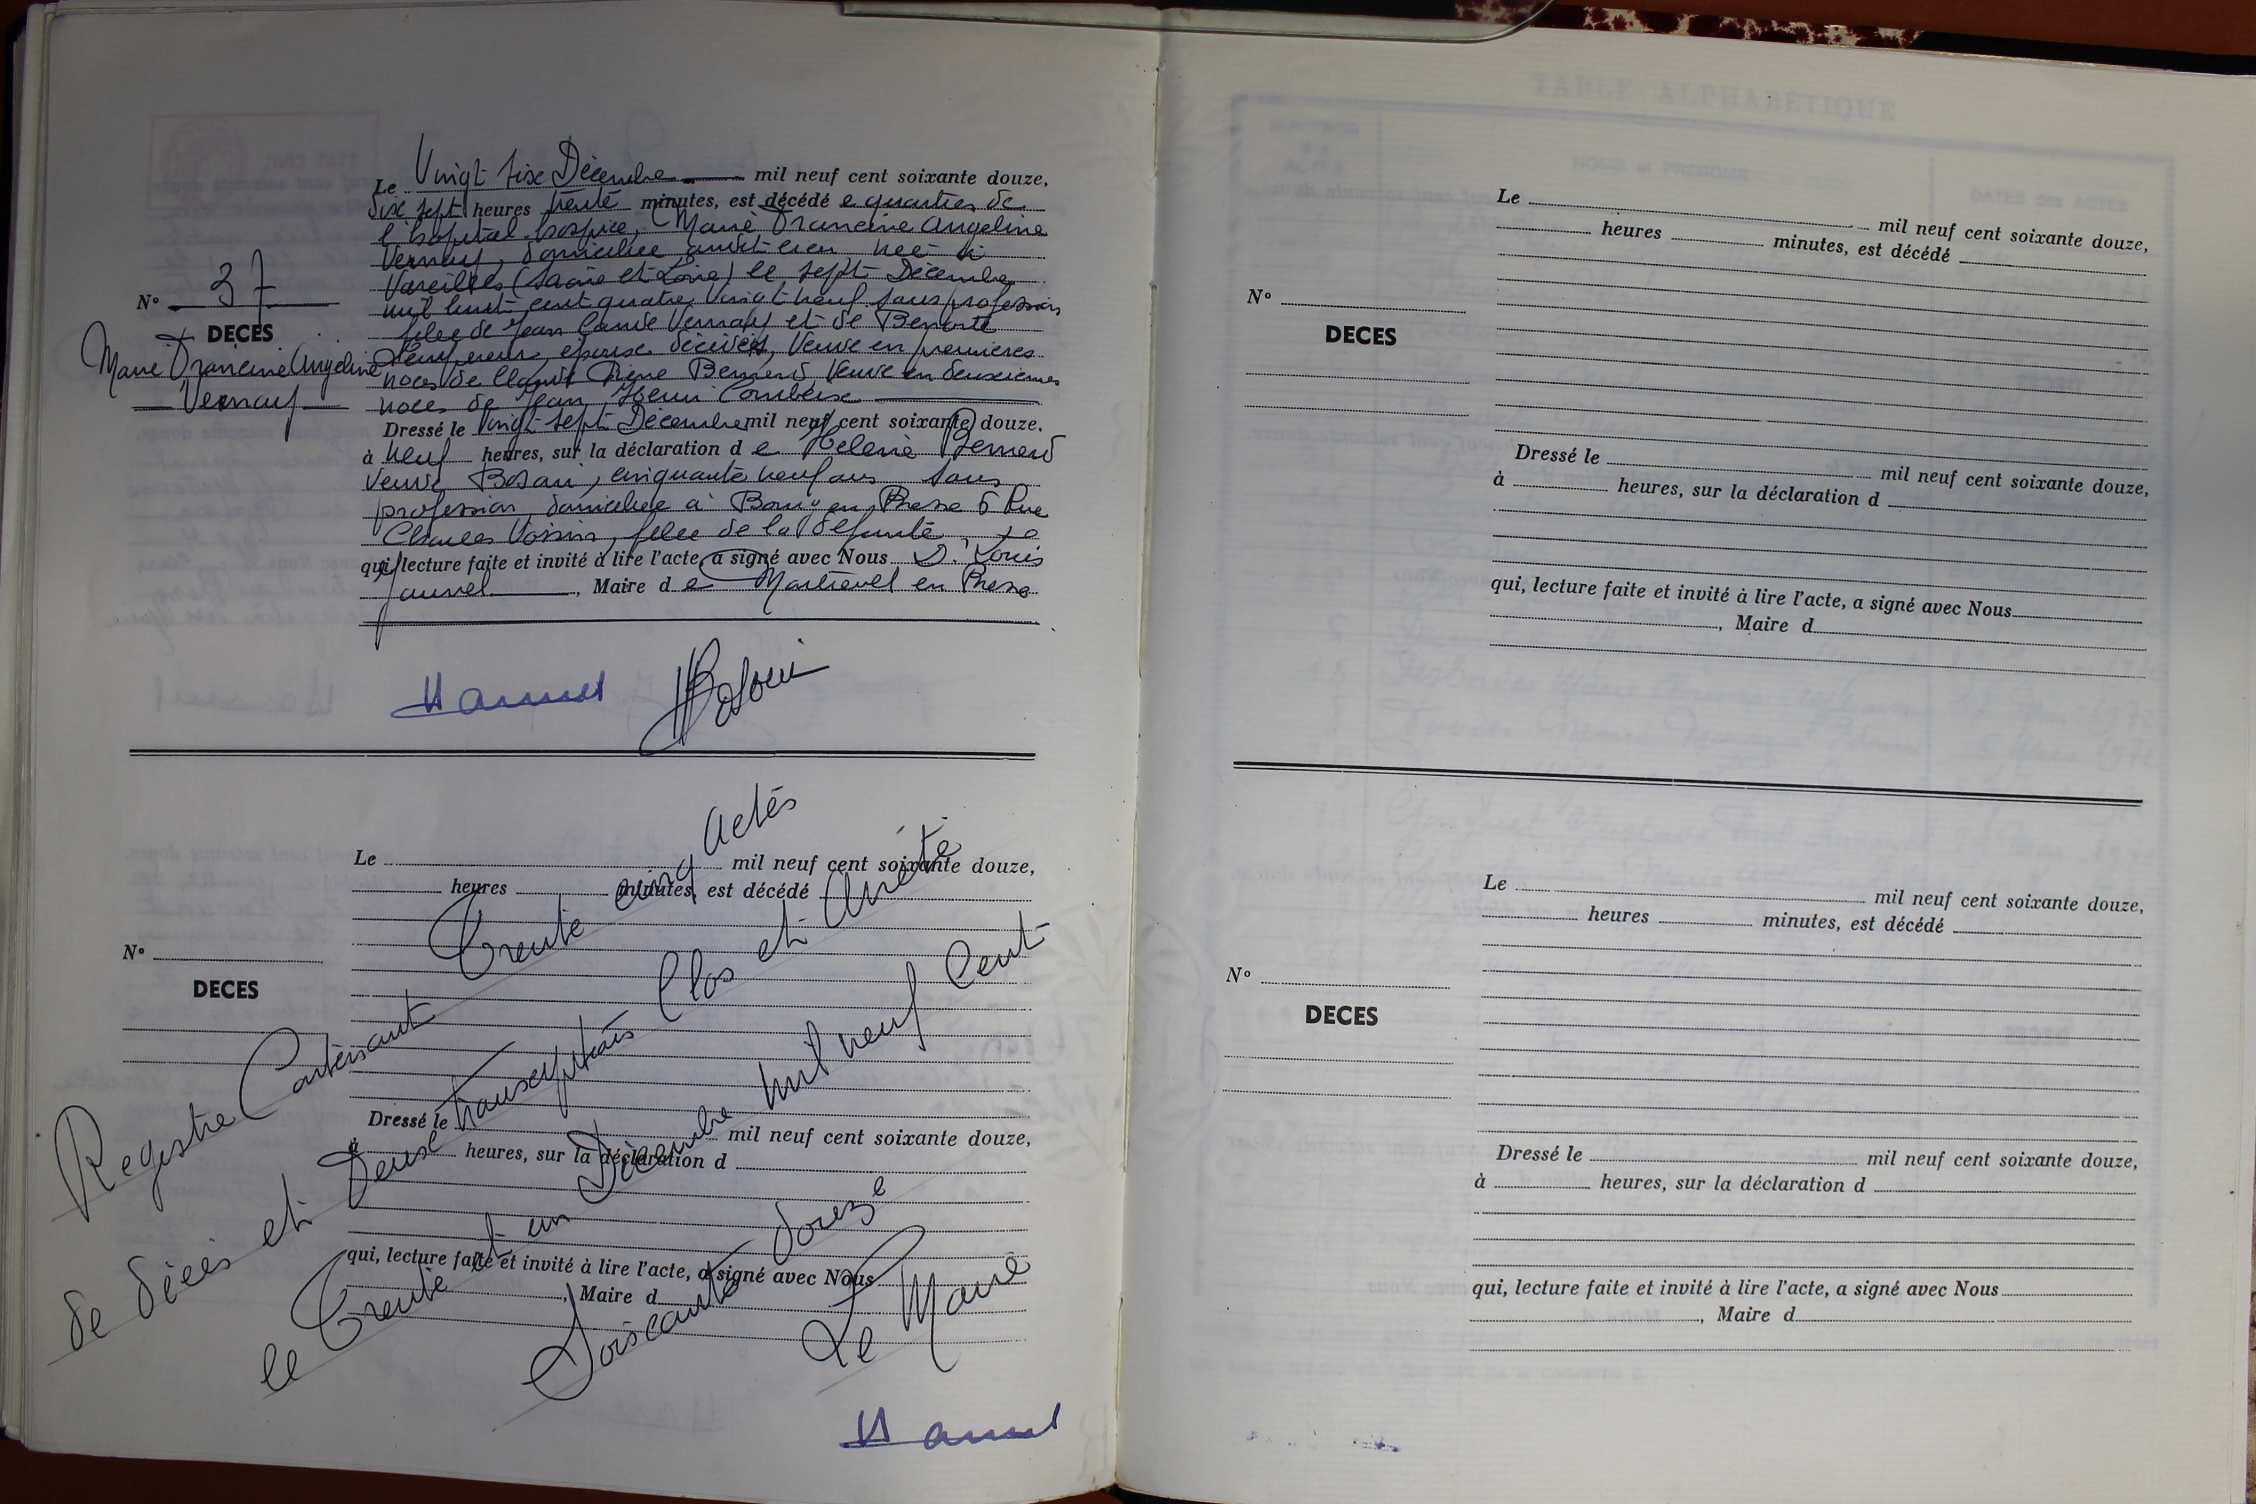 Le Vingt six Décembre mil neuf cent soixante douze,
dix sept heures trente minutes, est décédé e quartier de
l'hopital-hospice, Marie Francine Angeline
Vernay, domiciliée audit lieu née à
Vareilles (Saône et Loire) le sept Décembre
mil huit cent quatre vingt neuf sans profession
fille de Jean Claude Vernay et de Benoite
époux décédés, Veuve en premières
noces de Claude Bernard Veuve en deuxièmes
noces de Jean Henri Combère
N° 37
DECES
Marie Francine Angeline
Vernay
Dressé le Vingt sept Décembre mil neuf cent soixante douze.
à neuf heures, sur la déclaration d e Hélène Bernard
Veuve, cinquante neuf ans sans
profession, domiciliée à Bourg en Bresse 6 Rue
Charles Voisin, fille de la défunte
qui, lecture faite et invité à lire l'acte, a signé avec Nous Louis
Jauvel, Maire d e Montrevel en Bresse
Le mil neuf cent soixante douze,
heures minutes, est décédé
N°
DECES
Dressé le mil neuf cent soixante douze,
à heures, sur la déclaration d
qui, lecture faite et invité à lire l'acte, a signé avec Nous
, Maire d
Registre Contenant Trente cinq actes
de décès et Deux transcriptions Clos et Arrêté
le Trente et un Décembre mil neuf Cent
Soixante douze
Le Maire
TABLE ALPHABÉTIQUE
Le mil neuf cent soixante douze,
heures minutes, est décédé
N°
DECES
Dressé le mil neuf cent soixante douze,
à heures, sur la déclaration d
qui, lecture faite et invité à lire l'acte, a signé avec Nous
, Maire d
Le mil neuf cent soixante douze,
heures minutes, est décédé
N°
DECES
Dressé le mil neuf cent soixante douze,
à heures, sur la déclaration d
qui, lecture faite et invité à lire l'acte, a signé avec Nous
, Maire d